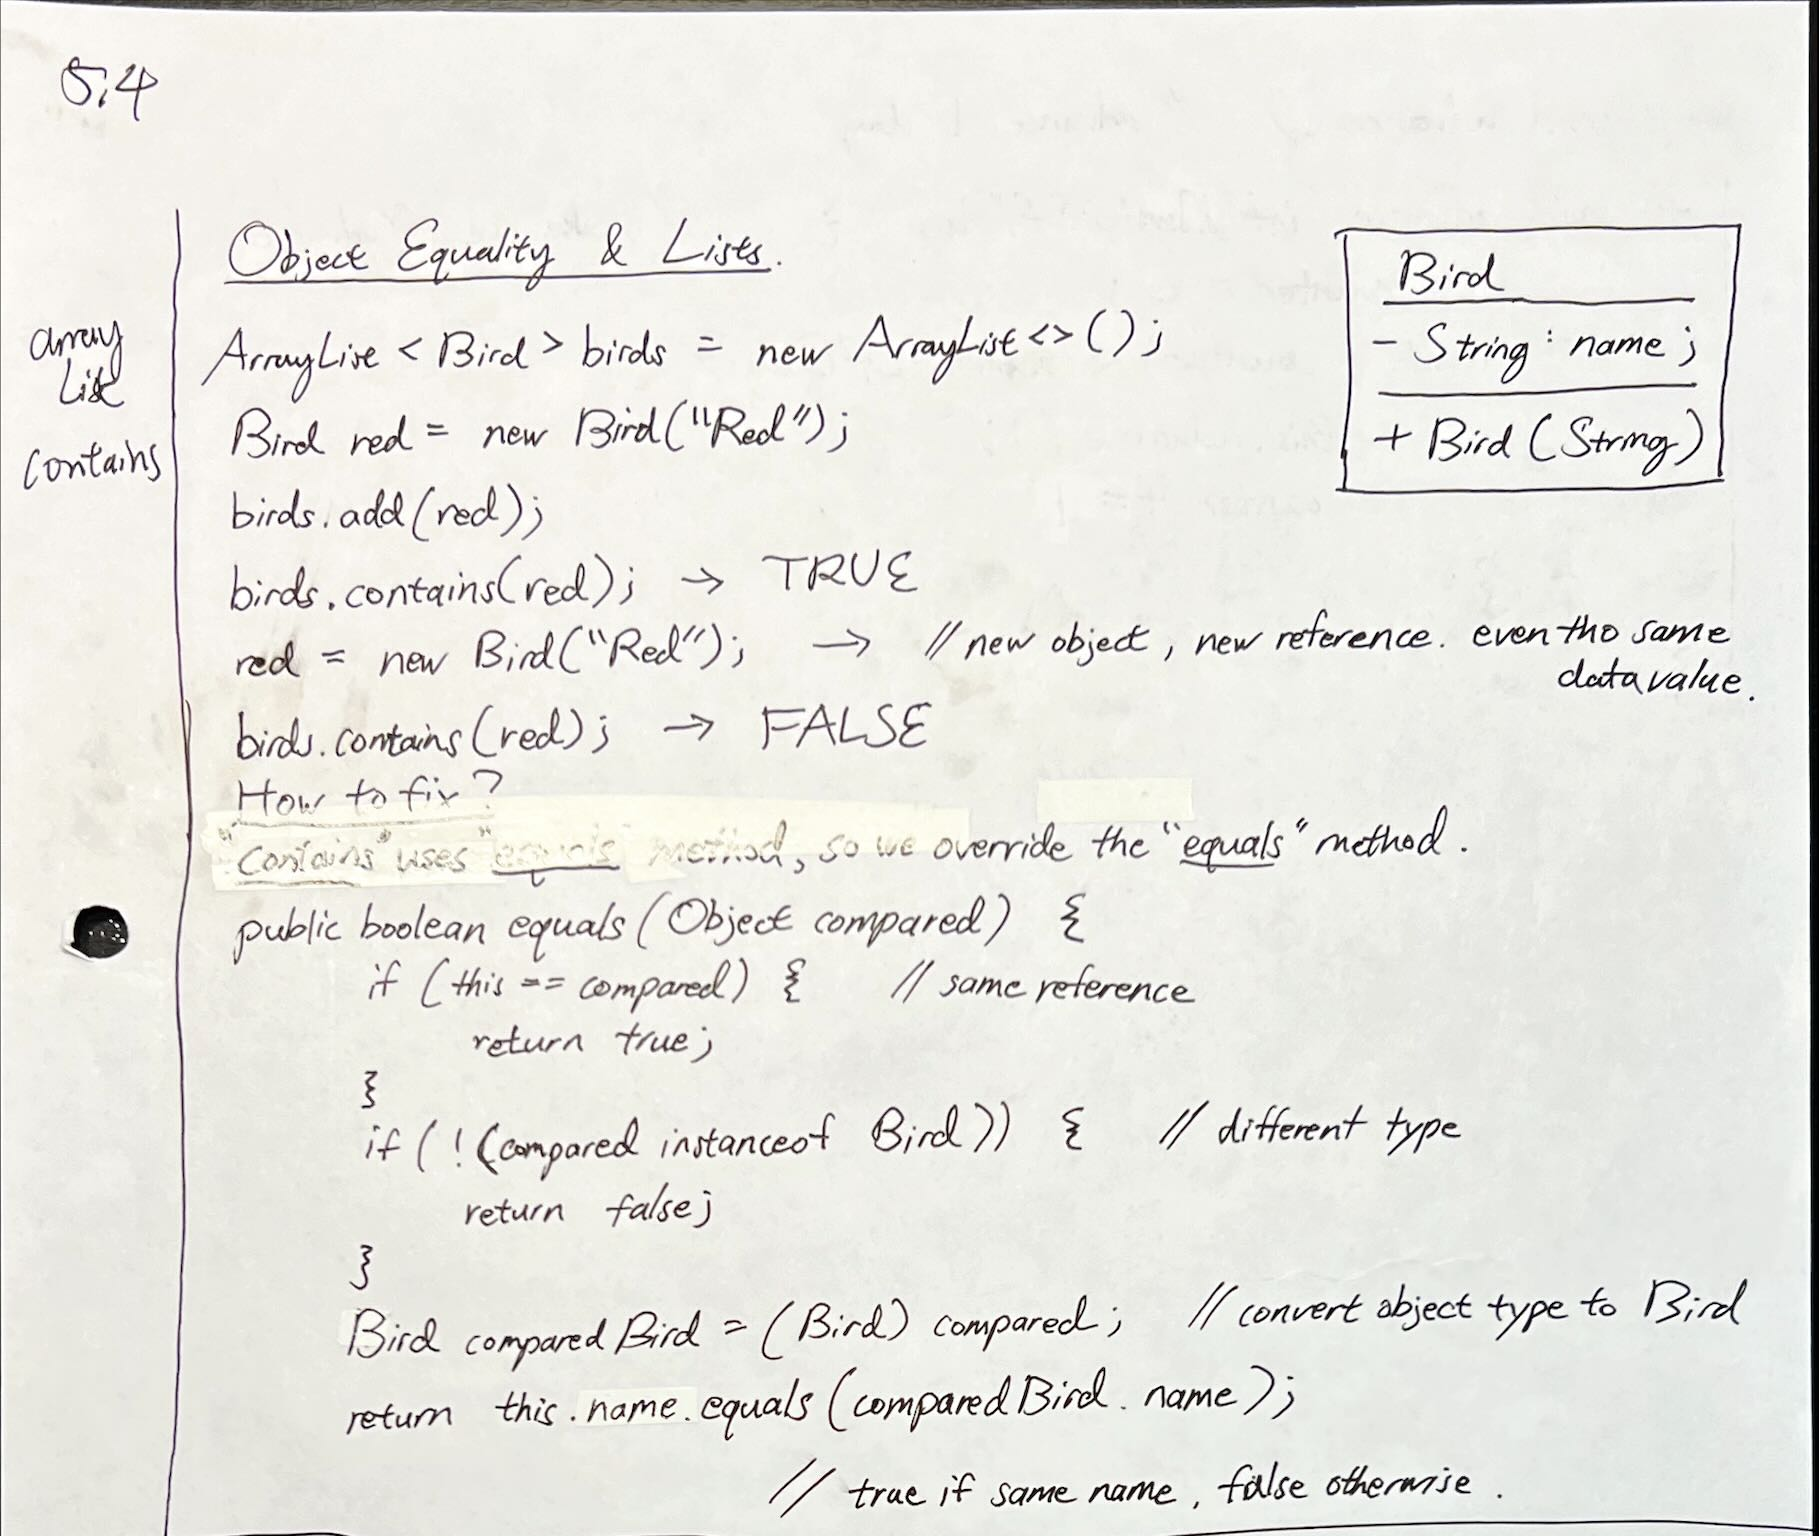 5.4
Object Equality & Lists.
array
List
contains
ArrayList <Bird> birds = new ArrayList<>();
Bird red = new Bird("Red");
birds.add(red);
birds.contains(red); → TRUE
red = new Bird("Red"); → // new object, new reference. even tho same
data value.
birds.contains(red); → FALSE
How to fix?
"contains" uses "equals" method, so we override the "equals" method.
public boolean equals(Object compared) {
if (this == compared) { // same reference
return true;
}
if (!(compared instanceof Bird)) { // different type
return false;
}
Bird comparedBird = (Bird) compared; // convert object type to Bird
return this.name.equals(comparedBird.name);
// true if same name, false otherwise.
Bird
- String: name;
+ Bird(String)